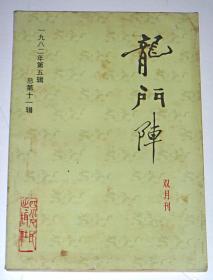 龍門陣
双月刊
一九八二年第五辑
总第十一辑